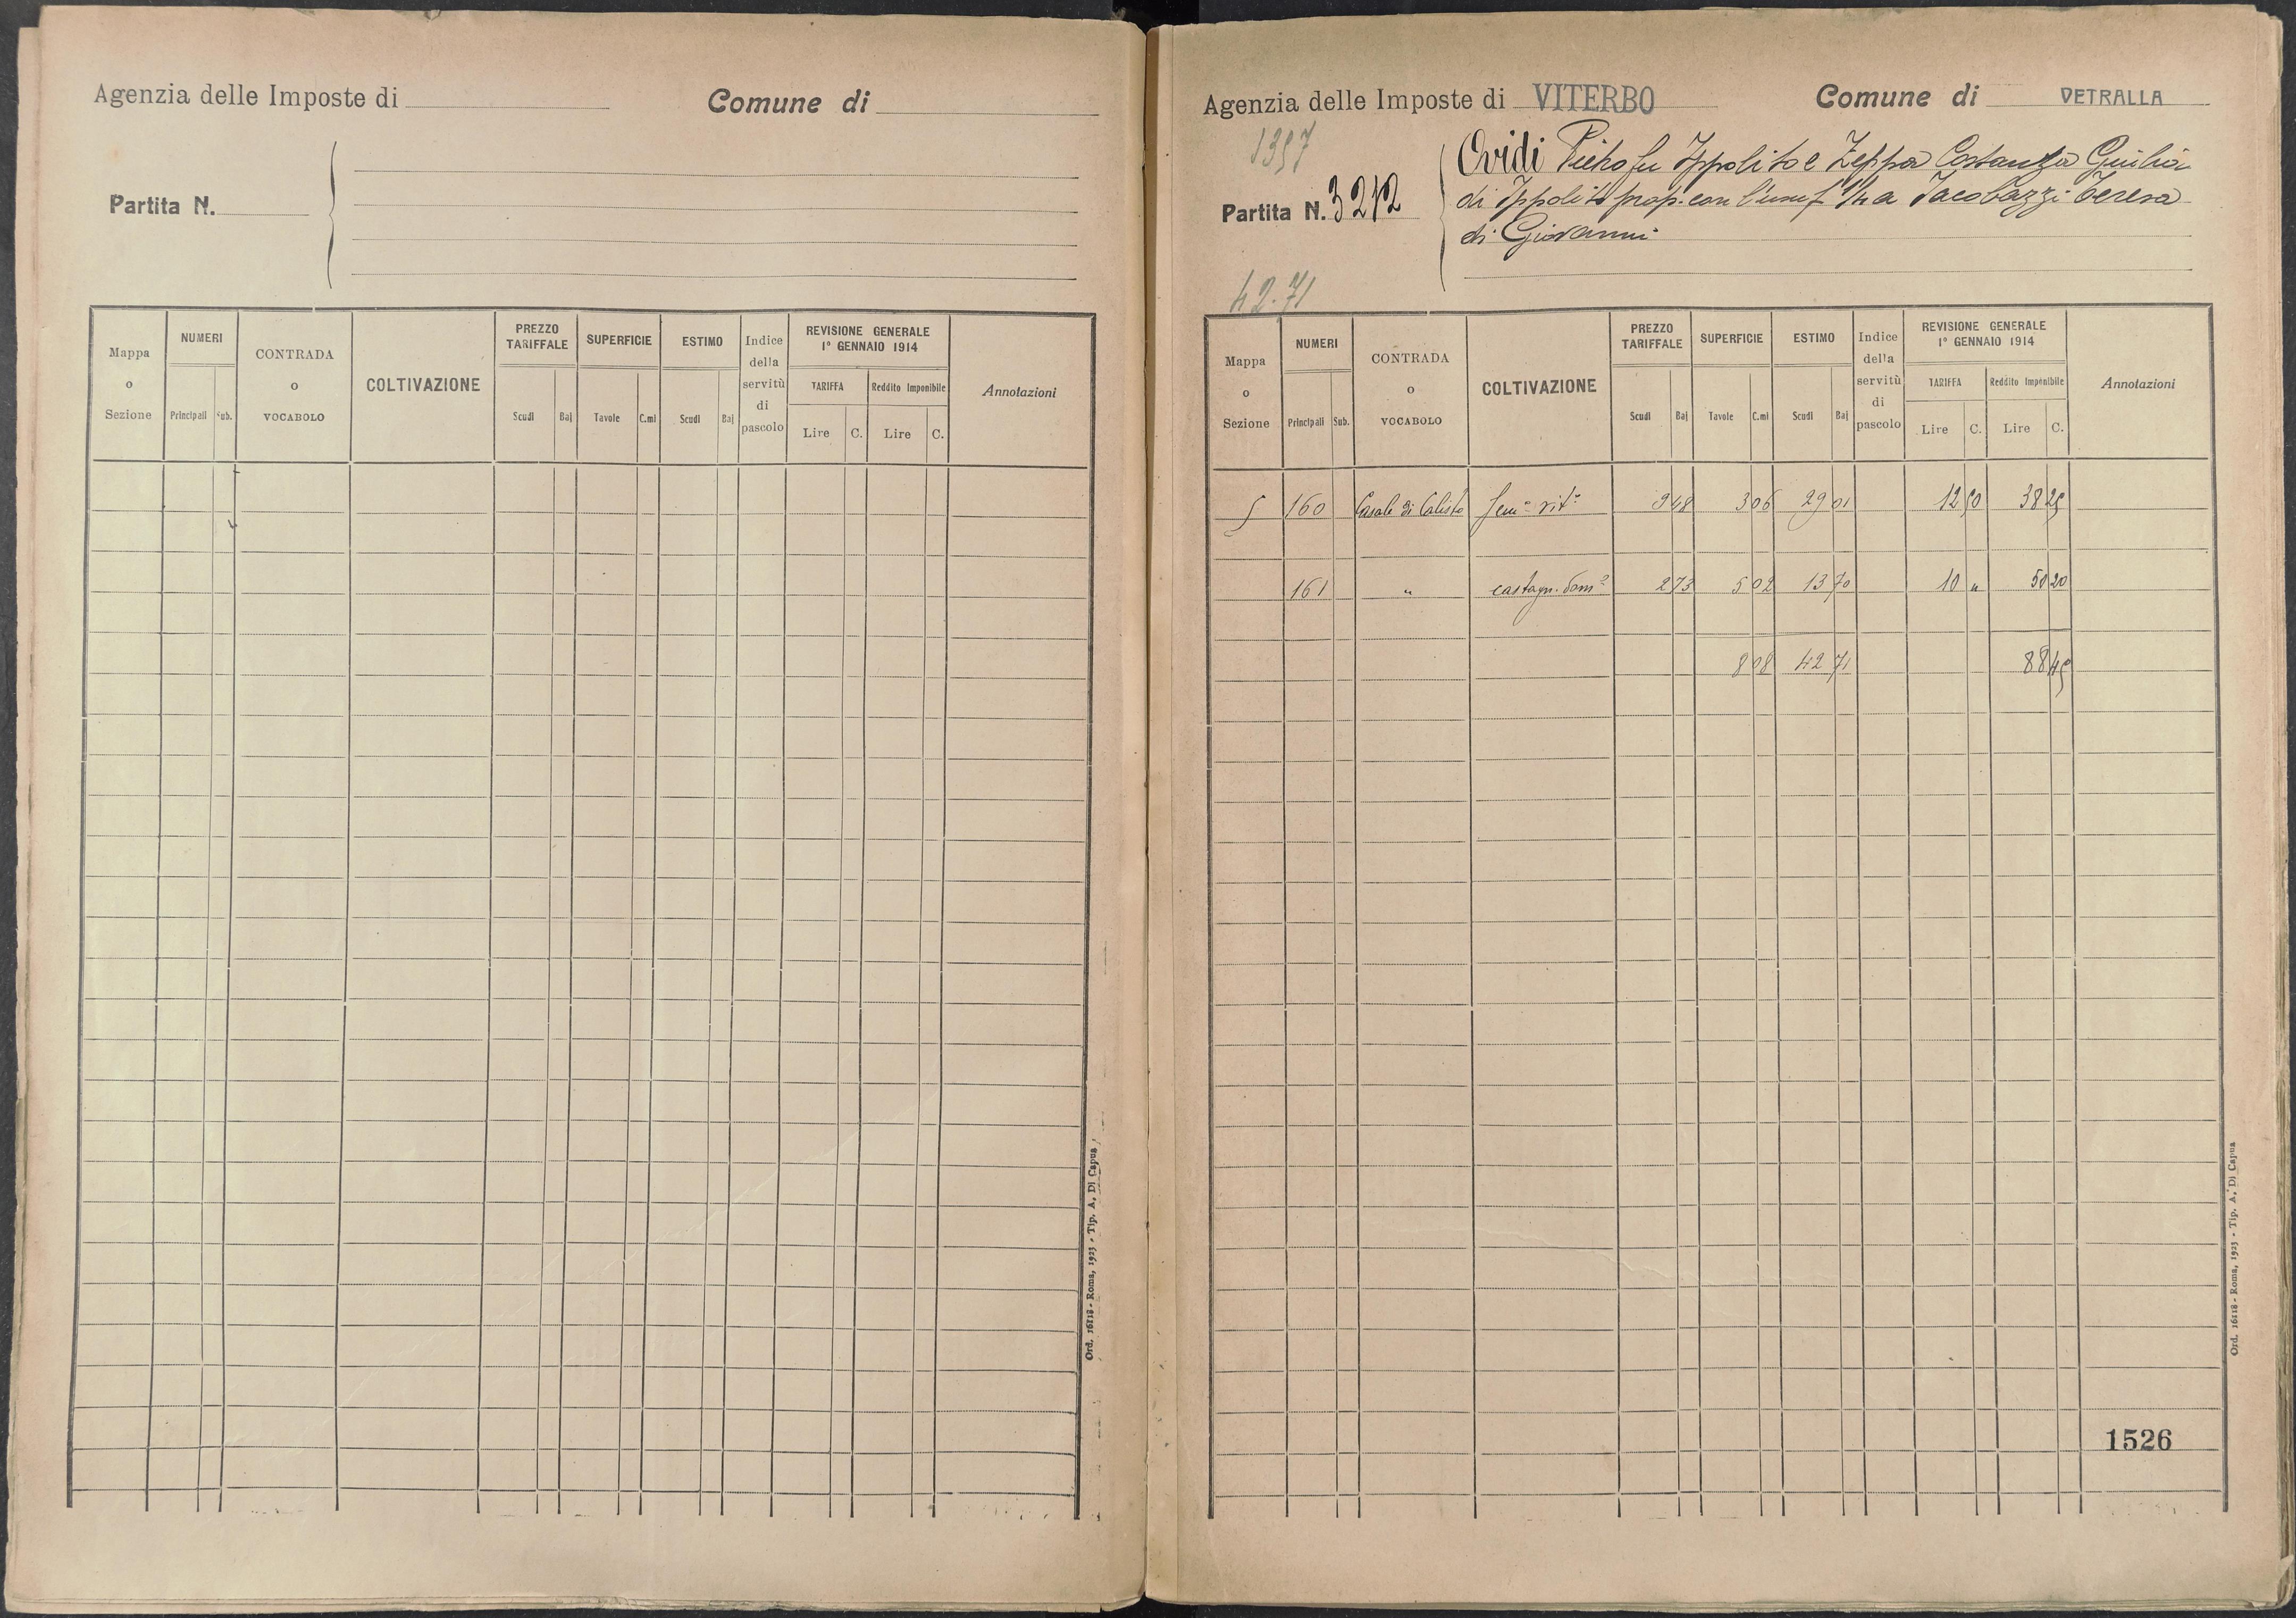 Agenzia delle Imposte di
Comune di
Partita N.
Mappa o Sezione
NUMERI
Principali
Sub.
CONTRADA o VOCABOLO
COLTIVAZIONE
PREZZO TARIFFALE
Scudi
Baj
SUPERFICIE
Tavole
C.mi
ESTIMO
Scudi
Baj
Indice della servitù di pascolo
REVISIONE GENERALE
1° GENNAIO 1914
TARIFFA
Reddito Imponibile
Lire
C.
Lire
C.
Annotazioni
Ord. 16118 - Roma, 1923 - Tip. A. Di Capua
Agenzia delle Imposte di VITERBO
Comune di VETRALLA
1397
Partita N. 3212
Ovidi Pietro fu Ippolito e Zeppa Costanza Giulia
di Ippolito prop. con l'usuf 1/4 a Jacobazzi Teresa
di Giovanni
42.71
Mappa o Sezione
NUMERI
Principali
Sub.
CONTRADA o VOCABOLO
COLTIVAZIONE
PREZZO TARIFFALE
Scudi
Baj
SUPERFICIE
Tavole
C.mi
ESTIMO
Scudi
Baj
Indice della servitù di pascolo
REVISIONE GENERALE
1° GENNAIO 1914
TARIFFA
Reddito Imponibile
Lire
C.
Lire
C.
Annotazioni
5 160 Casale di Calisto Sem.o vit.o 9 48 3 06 29 01 12 50 38 25
161 " castagn. dom.o 2 73 5 02 13 70 10 " 50 20
8 08 42 71 88 45
1526
Ord. 16118 - Roma, 1923 - Tip. A. Di Capua